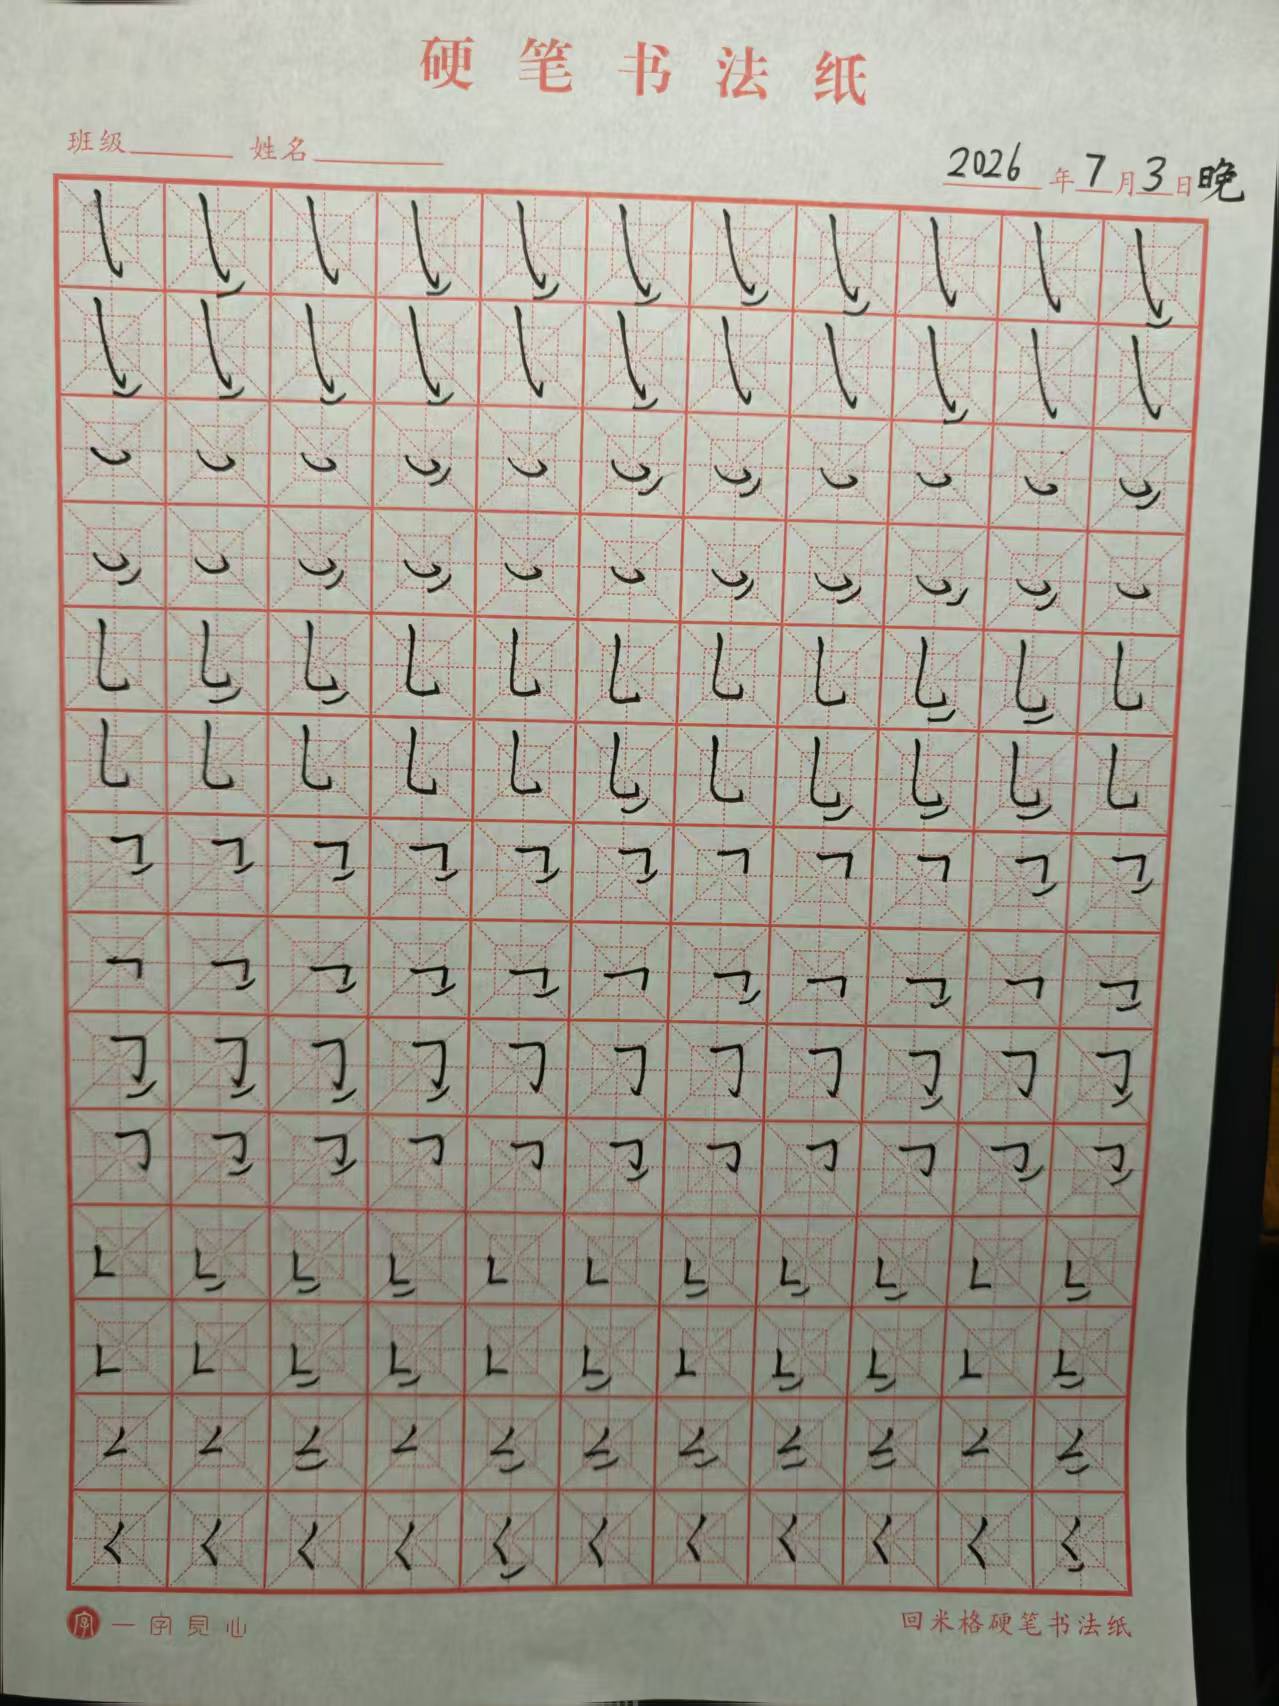 硬笔书法纸
班级 姓名 2026年7月3日晚
一字见心 回米格硬笔书法纸